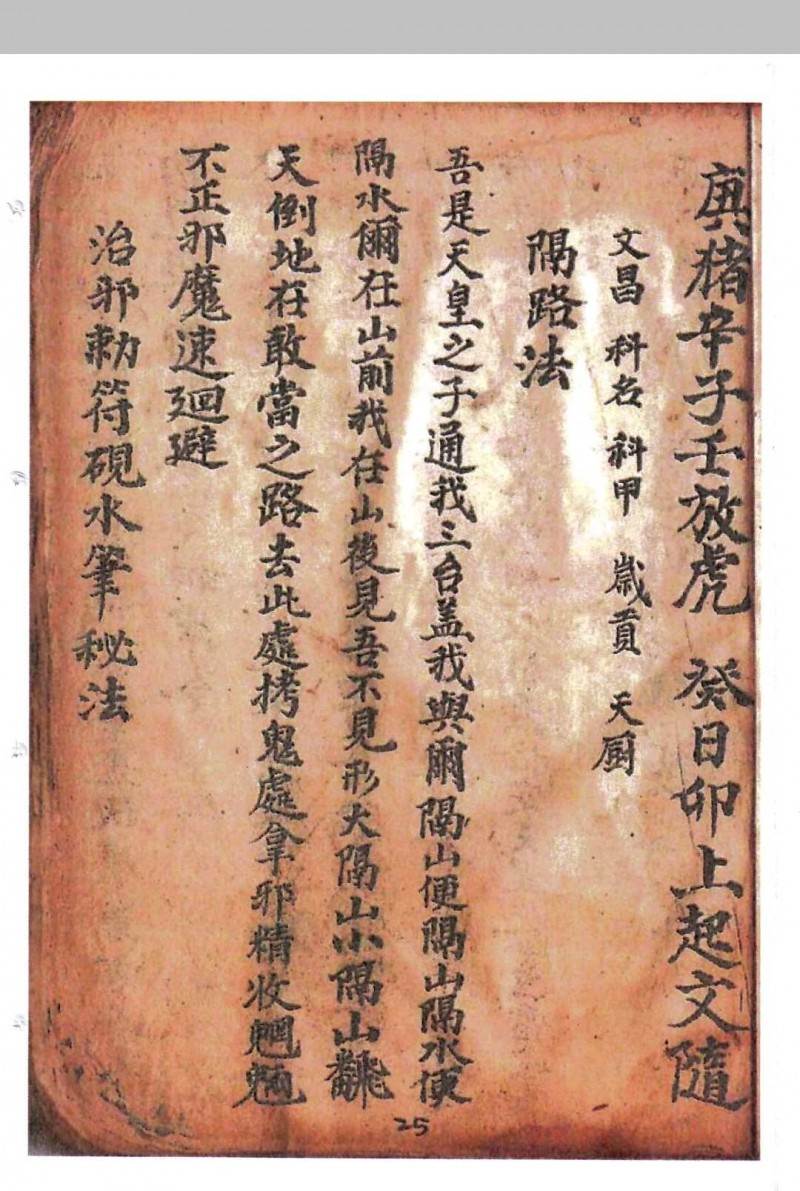 庚猪辛子壬放虎　癸日卯上起文隨
文昌　科名　科甲　歲貢　天厨
隔路法
吾是天皇之子通我三台盖我與爾隔山便隔山隔水便
隔水爾在山前我在山後見吾不見形大隔山小隔山翻
天倒地在敢當之路去此處拷鬼處拿邪精收魍魎
不正邪魔速廻避
治邪勅符硯水筆秘法
25